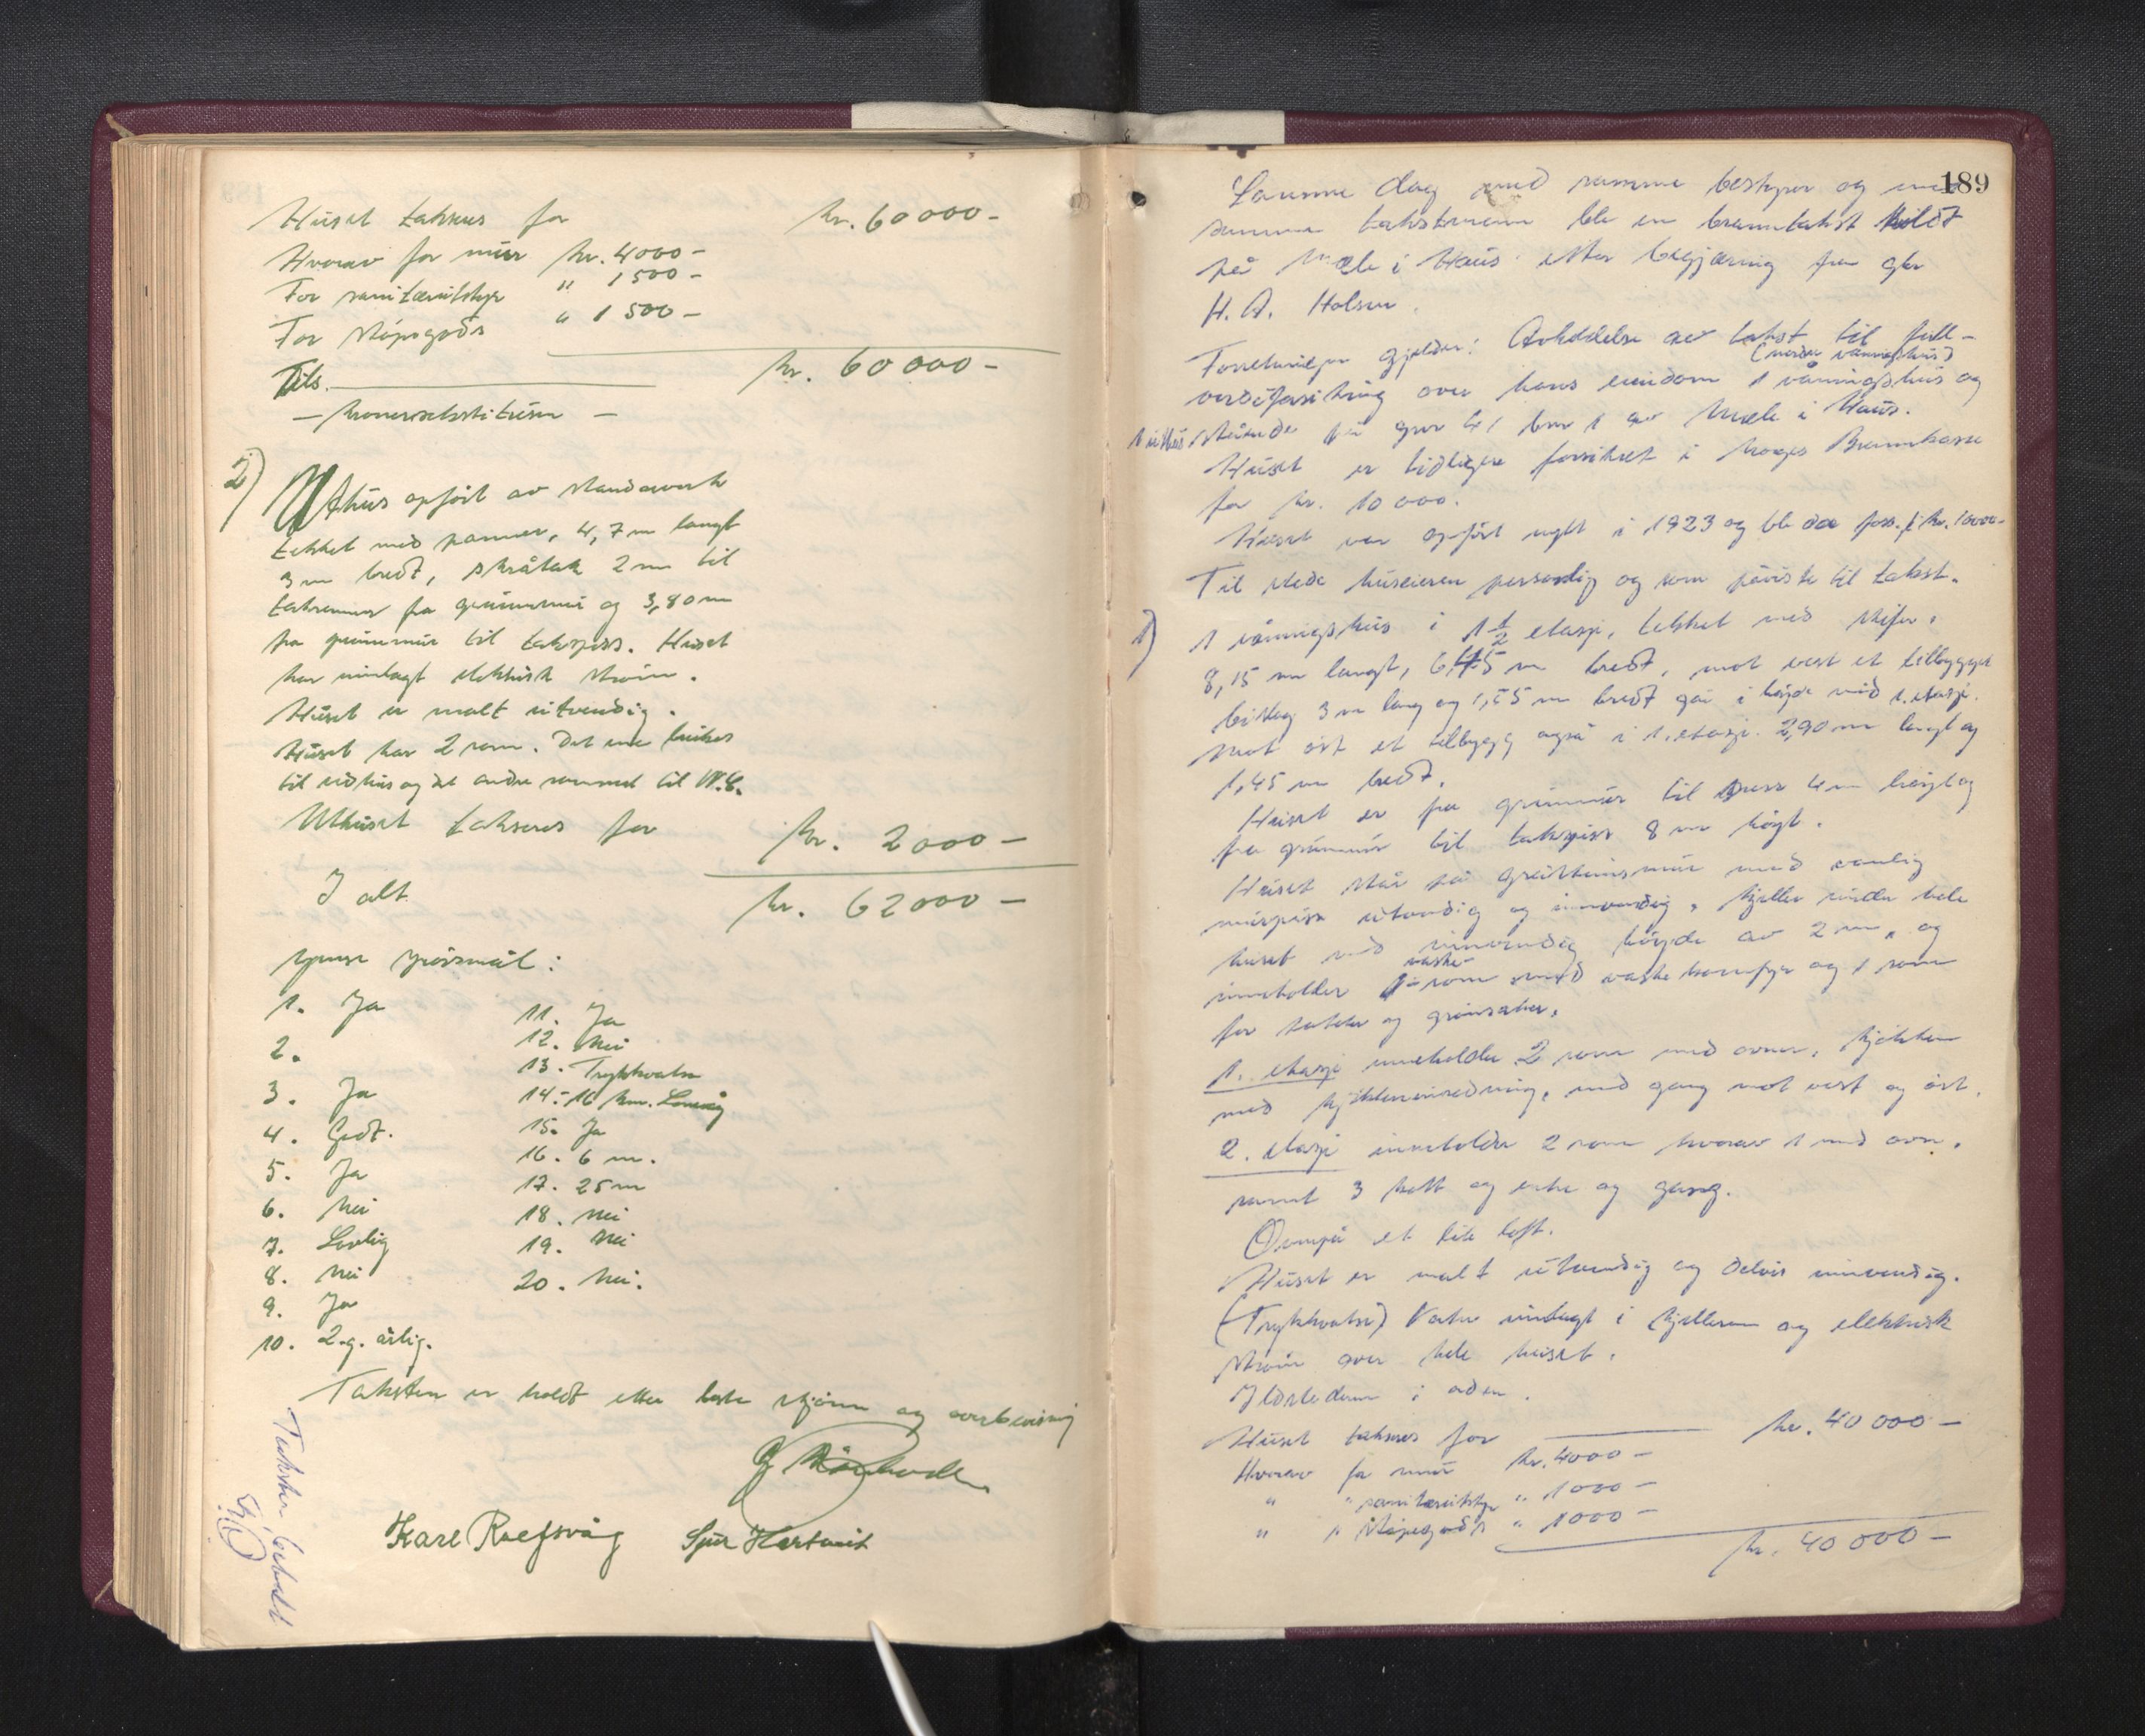 Huset takseres for kr. 60 000-
Hvorav for mur kr. 4000-
For sanitærutstyr " 1500-
For støpegods " 1500-
Tils. kr. 60 000-
2) Uthus opført av standerverk
tekket med panner, 4,7 m langt
3 m bredt, skråtak 2 m til
takrenner fra grunnmur og 3,80 m
fra grunnmur til takspiss. Huset
har innlagt elektrisk strøm.
Huset er malt utvendig.
Huset har 2 rom. Det ene brukes
til vedhus og det andre rommet til W.C.
Uthuset takseres for kr. 2000-
I alt kr. 62 000-
spørsmål:
1. Ja
2.
3. Ja
4. Godt.
5. Ja
6. Nei
7. Lovlig
8. Nei
9. Ja
10. 2. g. årlig.
11. Ja
12. Nei
13. Trykkvatn
14. 16 km.
15. Ja
16. 6 m.
17. 25 m
18. Nei
19. Nei
20. Nei.
Taksten er holdt etter beste skjønn og overbevisning
Karl Sjur
Taksten
189
Samme dag med samme bestyrer og med
samme takstmenn ble en branntakst holdt
på Mæle i Haus etter begjæring fra gbr
H. A. Holsen.
Forretningen gjelder: Avholdelse av takst til full-
(nedre våningshus)
verdiforsikring over hans eiendom 1 våningshus og
1 uthus stående på gnr 41 bnr 1 av Mæle i Haus.
Huset er tidligere forsikret i Norges Brannkasse
for kr. 10 000.
Huset var opført nytt i 1923 og ble da fors. f. kr. 10000-
Til stede huseieren personlig og som påviste til takst.
1) 1 våningshus i 1 1/2 etasje, tekket med skifer.
8,15 m langt, 6,45 m bredt, mot vest et tilbygget
bislag 3 m lang og 1,55 m bredt går i høyde med 1. etasje.
Mot øst et tilbygg også i 1. etasje. 2,90 m langt og
1,45 m bredt.
Huset er fra grunnmur til 4 m høyt og
fra grunnmur til takspiss 8 m høyt.
Huset står på gråsteinsmur med vanlig
murpuss utvendig og innvendig, kjeller under hele
huset med innvendig høyde av 2 m, og
vaske-
inneholder 1 rom med vaskekomfyr og 1 rom
for poteter og grønsaker.
1. etasje inneholder 2 rom med ovner, kjøkken
med kjøkkeninnredning, med gang mot vest og øst.
2. etasje inneholder 2 rom hvorav 1 med ovn,
samt 3 kott og og gang.
Ovenpå et lite loft.
Huset er malt utvendig og delvis innvendig.
(Trykkvatn) Vatn innlagt i kjelleren og elektrisk
strøm over hele huset.
Ildstedene i orden.
Huset takseres for kr. 40 000-
Hvorav for mur kr. 4000-
" " sanitærutstyr " 1000-
" " støpegods " 1000-
kr. 40 000-